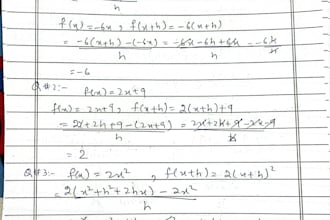 h
f(x)=-6x , f(x+h)=-6(x+h)
= -6(x+h)-(-6x) = -6x-6h+6x = -6h
h h h
=-6
Q#2:- f(x)=2x+9
f(x)=2x+9, f(x+h)=2(x+h)+9
= 2x+2h+9-(2x+9) = 2x+2h+9-2x-9
h h
= 2
Q#3:- f(x)=2x² , f(x+h)=2(x+h)²
= 2(x²+h²+2hx)-2x²
h